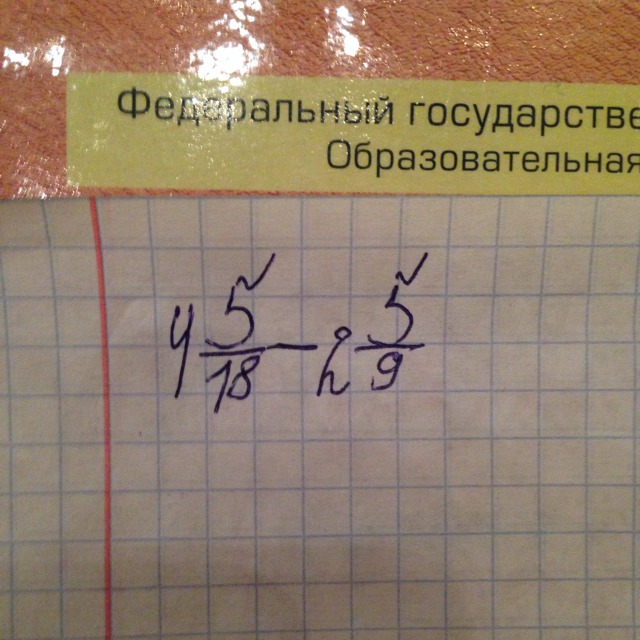 Федеральный государстве
Образовательная
4 5/18 - 2 5/9